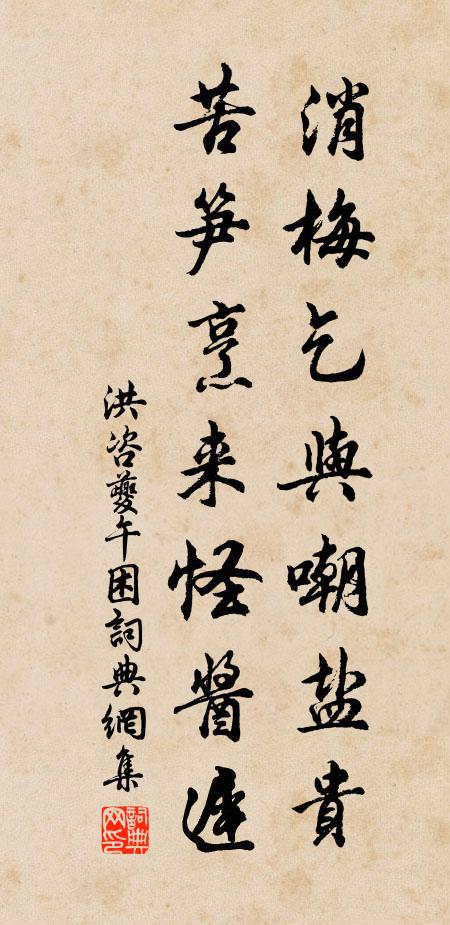 消梅乞與嘲盐貴
苦笋烹来怪醬遲
洪咨夔午困詞典網集
詞典網印